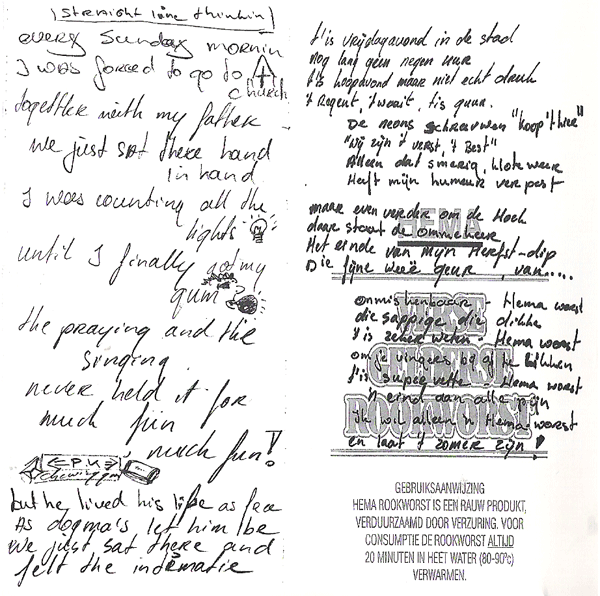 (straight line thinkin)
every Sunday mornin
I was forced to go to
church
together with my father
we just sat there hand
in hand
I was counting all the
lights
until I finally got my
gum
the praying and the
singing
never held it for
much fun
much fun!
chewinggum
but he lived his life as
As dogma's let him be
We just sat there and
felt the
't is vrijdagavond in de stad
nog lang geen negen uur
't is koopavond maar niet echt druk
't Regent, 't waait, 't is guur.
De neons schreeuwen "koop 't hier"
"Wij zijn 't verst, 't Best"
Alleen dat smerig, klote weer
Heeft mijn humeur verpest
maar even verder om de Hoek
HEMA
daar staat de ommekeer
Het einde van Mijn Herfst-dip
Die fijne weeë geur, van.....
onmiskenbaar - Hema worst
die sappige die dikke
VERSE
't is zeker weten - Hema worst
om je vingers bij af te likken
GELDERSE
't is super vette - Hema worst
'n eind aan alle pijn
ROOKWORST
Ik wil alleen 'n Hema-worst
en laat 't zomer zijn!
GEBRUIKSAANWIJZING
HEMA ROOKWORST IS EEN RAUW PRODUKT,
VERDUURZAAMD DOOR VERZURING. VOOR
CONSUMPTIE DE ROOKWORST ALTIJD
20 MINUTEN IN HEET WATER (80-90ºc)
VERWARMEN.